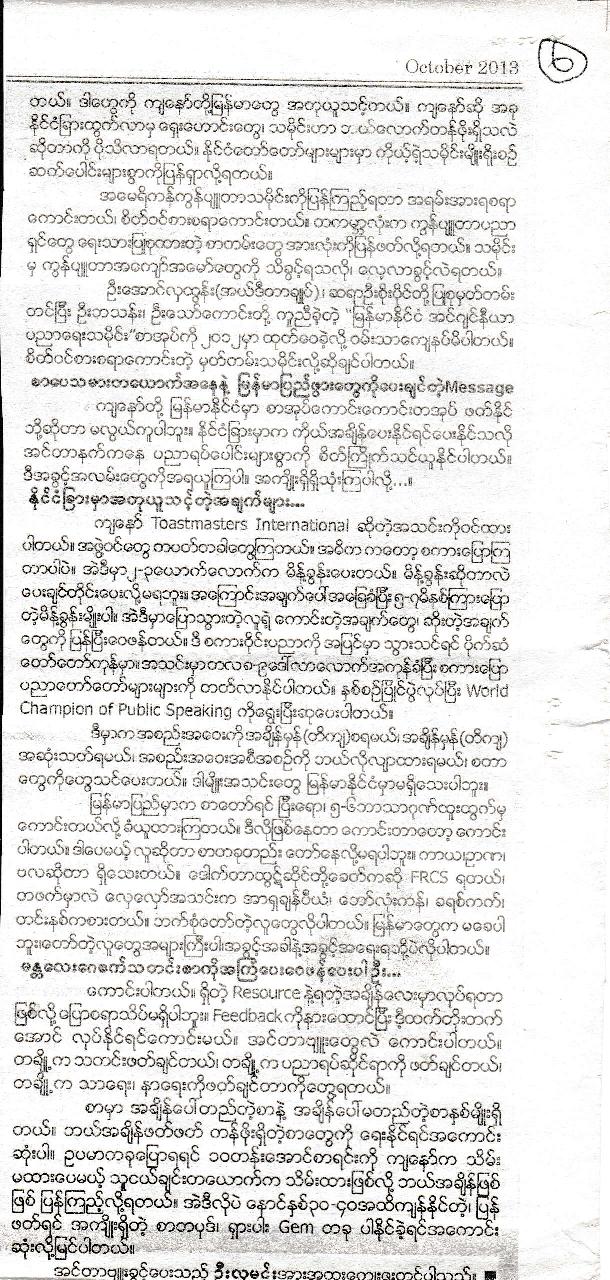 October 2013 ၆
တယ်။ ဒါတွေကို ကျနော်တို့မြန်မာတွေ အတုယူသင့်တယ်။ ကျနော်ဆို အခု
နိုင်ငံခြားထွက်လာမှ ရှေးဟောင်းတွေ၊ သမိုင်းဟာ ဘယ်လောက်တန်ဖိုးရှိသလဲ
ဆိုတာကို ပိုသိလာရတယ်။ နိုင်ငံတော်တော်များများမှာ ကိုယ့်ရဲ့သမိုင်းမျိုးရိုးစဉ်
ဆက်ပေါင်းများစွာကိုပြန်ရှာလို့ရတယ်။
အမေရိကန်ကွန်ပျူတာသမိုင်းကိုပြန်ကြည့်ရတာ အရမ်းအားရစရာ
ကောင်းတယ်၊ စိတ်ဝင်စားစရာကောင်းတယ်။ တကမ္ဘာလုံးက ကွန်ပျူတာပညာ
ရှင်တွေ ရေးသားပြုစုထားတဲ့ စာတမ်းတွေ အားလုံးကိုပြန်ဖတ်လို့ရတယ်။ သမိုင်း
မှ ကွန်ပျူတာအကျော်အမော်တွေကို သိခွင့်ရသလို၊ လေ့လာခွင့်လဲရတယ်။
ဦးအောင်လှထွန်း(အယ်ဒီတာချုပ်)၊ ဆရာဦးစိုးပိုင်တို့ ပြုစုမှတ်တမ်း
တင်ပြီး ဦးဘသန်း၊ ဦးသော်ကောင်းတို့ ကူညီခဲ့တဲ့ "မြန်မာနိုင်ငံ အင်ဂျင်နီယာ
ပညာရေးသမိုင်း"စာအုပ်ကို ၂၀၁၂မှာ ထုတ်ဝေခဲ့လို့ ဝမ်းသာကျေနပ်မိပါတယ်။
စိတ်ဝင်စားစရာကောင်းတဲ့ မှတ်တမ်းသမိုင်းလို့ဆိုချင်ပါတယ်။
စာပေသမားတယောက်အနေနဲ့ မြန်မာပြည်ဖွားတွေကိုပေးချင်တဲ့Message
ကျနော်တို့ မြန်မာနိုင်ငံမှာ စာအုပ်ကောင်းကောင်းတအုပ် ဖတ်နိုင်
ဘို့ဆိုတာ မလွယ်ကူပါဘူး။ နိုင်ငံခြားမှာက ကိုယ်အချိန်ပေးနိုင်ရင်ပေးနိုင်သလို
အင်တာနက်ကနေ ပညာရပ်ပေါင်းများစွာကို စိတ်ကြိုက်သင်ယူနိုင်ပါတယ်။
ဒီအခွင့်အလမ်းတွေကိုအရယူကြပါ။ အကျိုးရှိရှိသုံးကြပါလို့...။
နိုင်ငံခြားမှာအတုယူသင့်တဲ့အချက်များ...
ကျနော် Toastmasters International ဆိုတဲ့အသင်းကိုဝင်ထား
ပါတယ်။ အဖွဲ့ဝင်မတွေ တပတ်တခါတွေ့ကြတယ်။ အဓိက ကတော့ စကားပြောကြ
တာပါပဲ။ အဲဒီမှာ၂-၃ယောက်လောက်က မိန့်ခွန်းပေးတယ်။ မိန့်ခွန်းဆိုတာလဲ
ပေးချင်တိုင်းပေးလို့မရဘူး။ အကြောင်းအချက်ပေါ်အခြေခံပြီး ၅-၇မိနစ်ကြားပြော
တဲ့မိန့်ခွန်းမျိုးပါ။ အဲဒီမှာပြောသွားတဲ့လူရဲ့ ကောင်းတဲ့အချက်တွေ၊ ဆိုးတဲ့အချက်
တွေကို ပြန်ပြီးဝေဖန်တယ်။ ဒီ စကားဝိုင်းပညာကို အပြင်မှာ သွားသင်ရင် ပိုက်ဆံ
တော်တော်ကုန်မှာ။ အသင်းမှာတလ ၈-၉ဒေါ်လာလောက်အကုန်ခံပြီး စကားပြော
ပညာတော်တော်များများကို တတ်လာနိုင်ပါတယ်။ နှစ်စဉ်ပြိုင်ပွဲလုပ်ပြီး World
Champion of Public Speaking ကိုရွေးပြီးဆုပေးပါတယ်။
ဒီမှာက အစည်းအဝေးကို အချိန်မှန်(တိကျ)စရမယ်၊ အချိန်မှန်(တိကျ)
အဆုံးသတ်ရမယ်၊ အစည်းအဝေးအစီအစဉ်ကို ဘယ်လိုလျာထားရမယ်၊ စတာ
တွေကိုတွေ့သင်ပေးတယ်။ ဒါမျိုးအသင်းတွေ မြန်မာနိုင်ငံမှာမရှိသေးပါဘူး။
မြန်မာပြည်မှာက စာတော်ရင် ပြီးရော၊ ၅-၆ဘာသာဂုဏ်ထူးထွက်မှ
ကောင်းတယ်လို့ ခံယူထားကြတယ်။ ဒီလိုဖြစ်နေတာ ကောင်းတာတော့ ကောင်း
ပါတယ်။ ဒါပေမယ့် လူဆိုတာ စာတခုတည်း တော်နေလို့မရပါဘူး။ ကာယ၊ဉာဏ၊
ဗလဆိုတာ ရှိသေးတယ်။ ဒေါက်တာထွဋ်ဆိုင်တို့ခေတ်ကဆို FRCS ရတယ်၊
တဖက်မှာလဲ လှေလှော်အသင်းက အာရှချန်ပီယံ၊ ဘော်လုံးကန်၊ ခရစ်ကက်၊
တင်းနစ်ကစားတယ်။ ဘက်စုံတော်တဲ့လူတွေလိုပါတယ်။ မြန်မာတွေက မခေပါ
ဘူး၊တော်တဲ့လူတွေအများကြီးပါ၊အခွင့်အခါနဲ့အခွင့်အရေးရဘို့ပဲလိုပါတယ်။
မန္တလေးဂေဇက်သတင်းစာကိုအကြံပေးဝေဖန်ပေးပါဦး...
ကောင်းပါတယ်။ ရှိတဲ့ Resource နဲ့ရတဲ့အချိန်လေးမှာလုပ်ရတာ
ဖြစ်လို့ ပြောစရာသိပ်မရှိပါဘူး။ Feedback ကိုနားထောင်ပြီး ဒီ့ထက်တိုးတက်
အောင် လုပ်နိုင်ရင်ကောင်းမယ်။ အင်တာဗျူးတွေလဲ ကောင်းပါတယ်။
တချို့က သတင်းဖတ်ချင်တယ်၊ တချို့က ပညာရပ်ဆိုင်ရာကို ဖတ်ချင်တယ်၊
တချို့က သာရေး၊ နာရေးကိုဖတ်ချင်တာကိုတွေ့ရတယ်။
စာမှာ အချိန်ပေါ်တည်တဲ့စာနဲ့ အချိန်ပေါ်မတည်တဲ့စာနှစ်မျိုးရှိ
တယ်။ ဘယ်အချိန်ဖတ်ဖတ် တန်ဖိုးရှိတဲ့စာတွေကို ရေးနိုင်ရင်အကောင်း
ဆုံးပါ။ ဥပမာတခုပြောရရင် ၁၀တန်းအောင်စာရင်းကို ကျနော်က သိမ်း
မထားပေမယ့် သူငယ်ချင်းတယောက်က သိမ်းထားဖြစ်လို့ ဘယ်အချိန်ဖြစ်
ဖြစ် ပြန်ကြည့်လို့ရတယ်။ အဲဒီလိုပဲ နောင်နှစ်၃၀-၄၀အထိကျန်နိုင်တဲ့၊ ပြန်
ဖတ်ရင် အကျိုးရှိတဲ့ စာတပုဒ်၊ ရှားပါး Gem တခု ပါနိုင်ခဲ့ရင်အကောင်း
ဆုံးလို့မြင်ပါတယ်။
အင်တာဗျူးခွင့်ပေးသည့် ဦးလှမင်းအားအထူးကျေးဇူးတင်ပါသည်။ ■